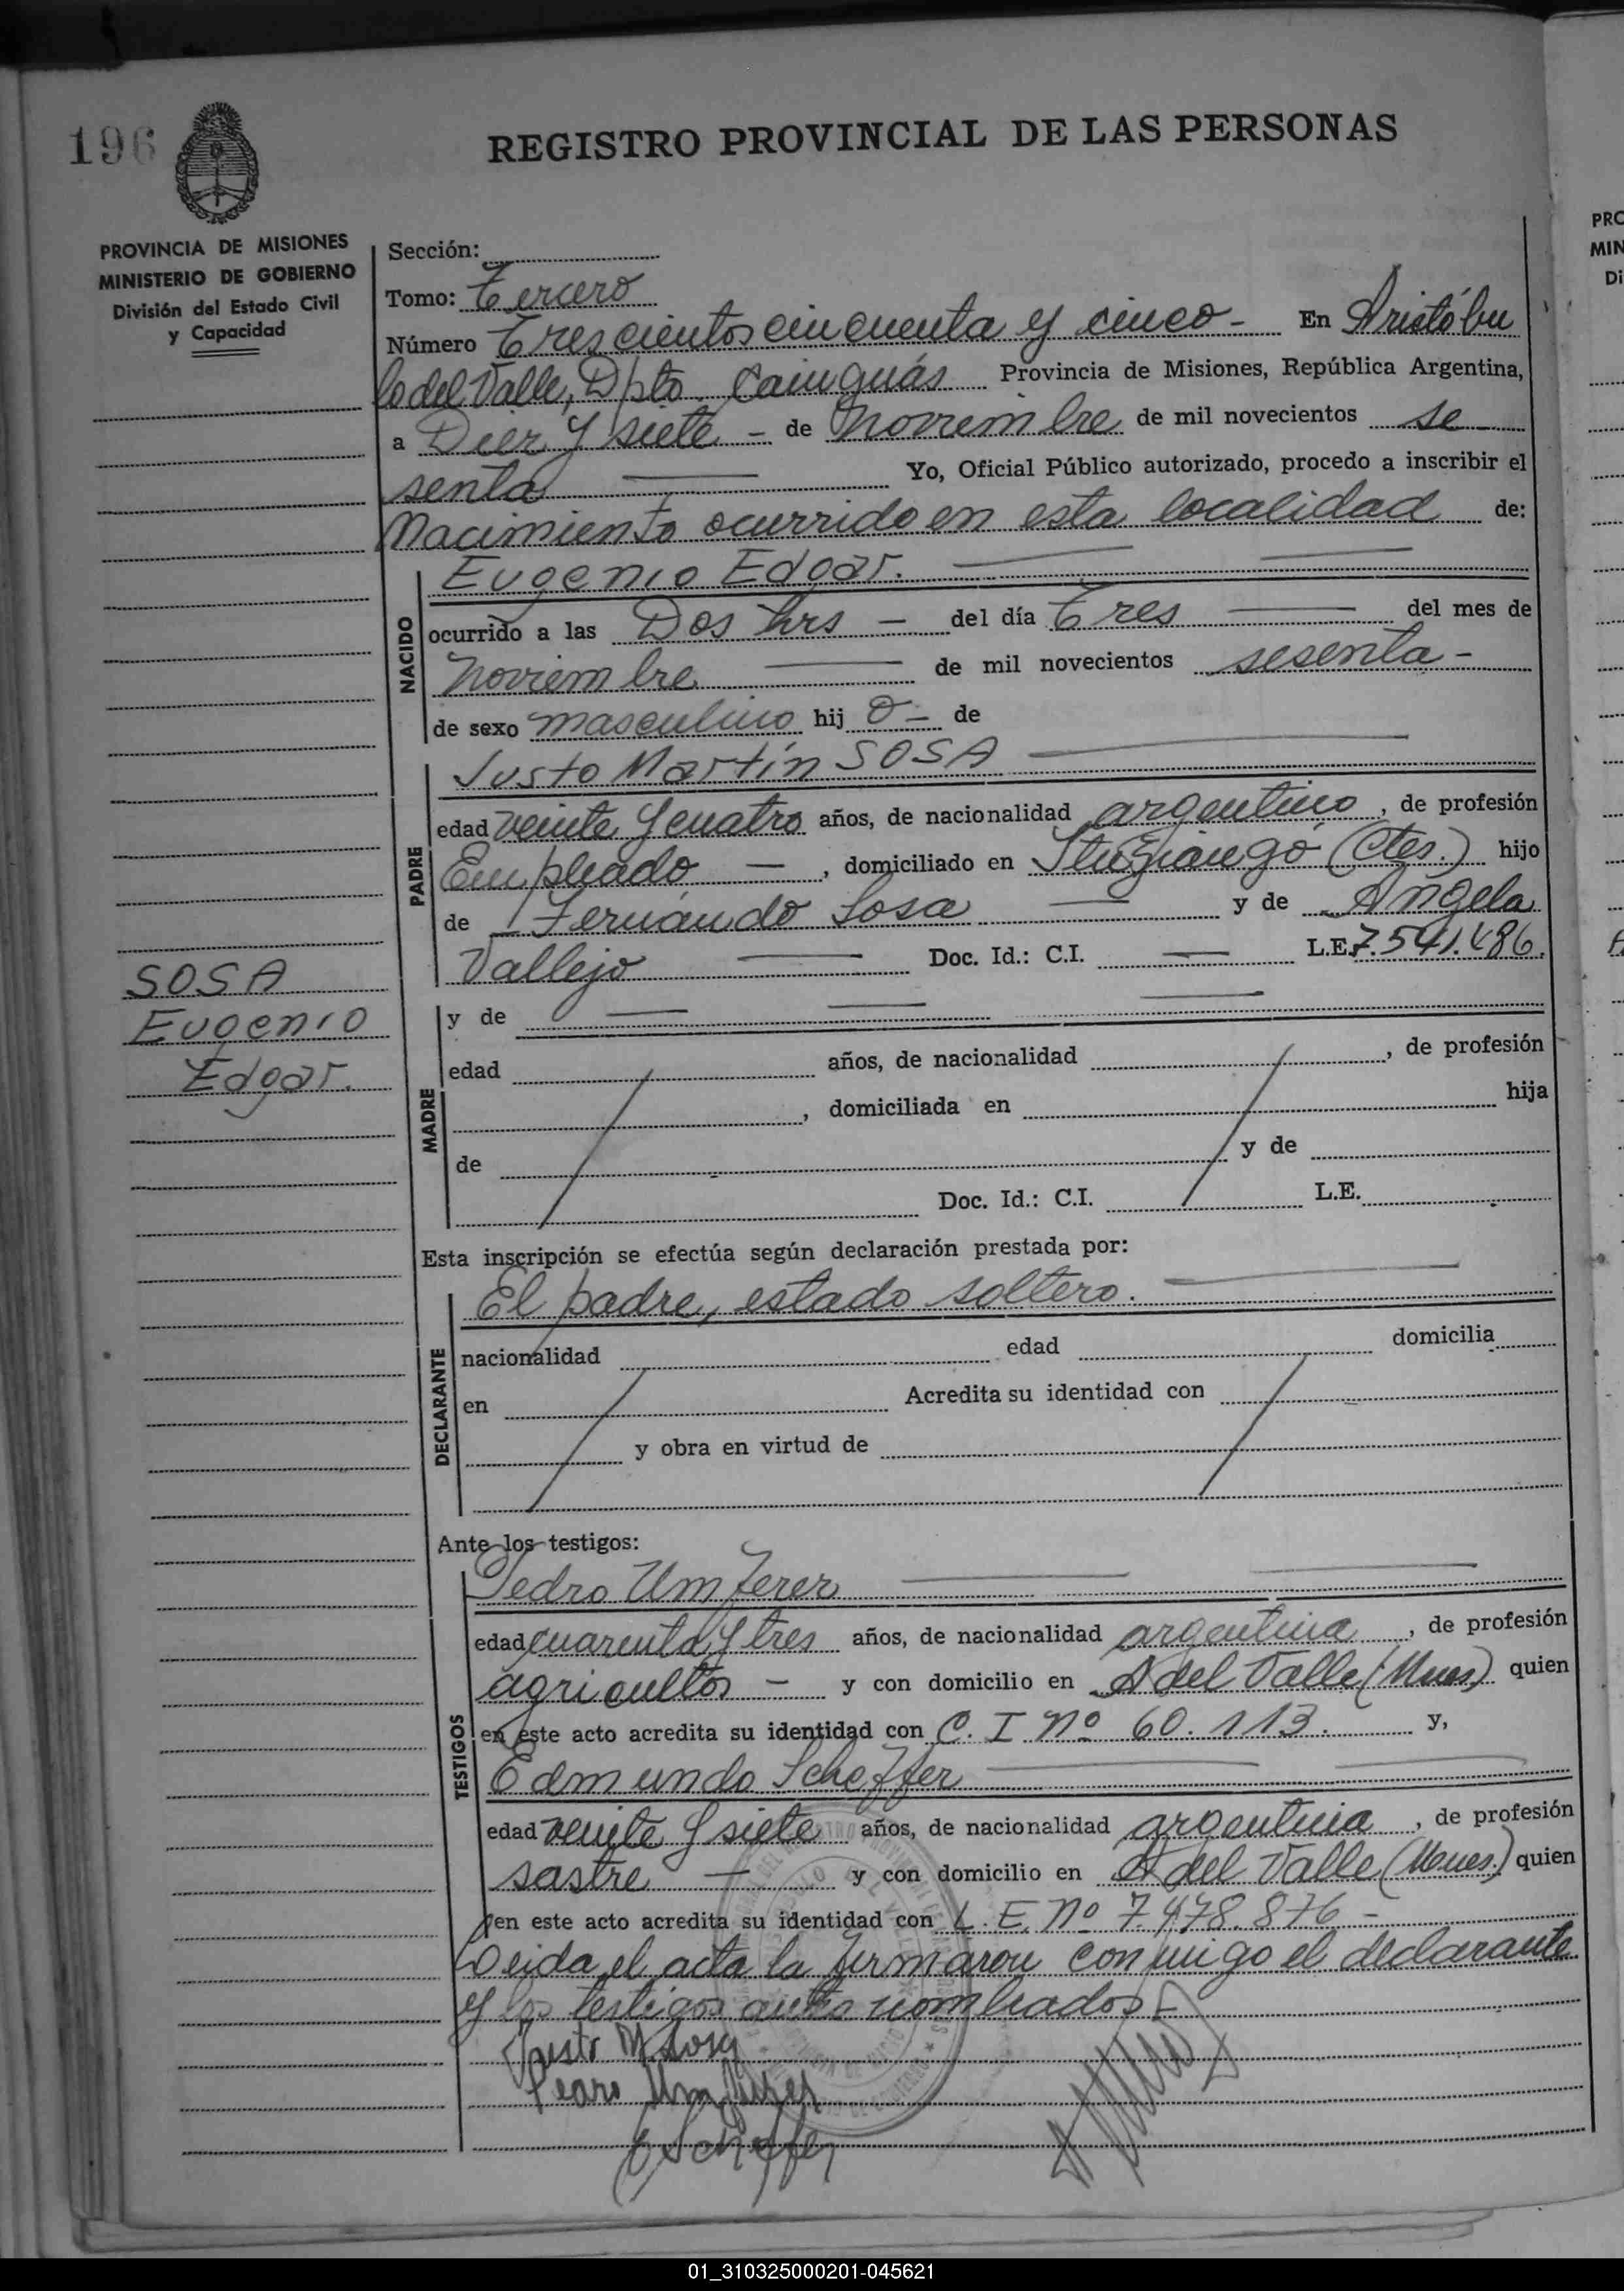 196
REGISTRO PROVINCIAL DE LAS PERSONAS
PROVINCIA DE MISIONES
MINISTERIO DE GOBIERNO
División del Estado Civil
y Capacidad
Sección:
Tomo: Tercero
Número Trescientos cincuenta y cinco - En Aristóbu
lo del Valle, Dpto. Cainguás Provincia de Misiones, República Argentina,
a Diez y siete - de Noviembre de mil novecientos se
senta Yo, Oficial Público autorizado, procedo a inscribir el
Nacimiento ocurrido en esta localidad de:
NACIDO
Eugenio Edgar.
ocurrido a las Dos hrs - del día Tres del mes de
Noviembre de mil novecientos sesenta -
de sexo masculino hij o - de
PADRE
Justo Martín SOSA
edad veinte y cuatro años, de nacionalidad argentino, de profesión
Empleado -, domiciliado en (Ctes.) hijo
de Fernando Sosa y de Angela
Vallejo Doc. Id.: C.I. — L.E. 7.541.486.
SOSA
Eugenio
Edgar.
MADRE
y de
edad años, de nacionalidad , de profesión
, domiciliada en hija
de y de
Doc. Id.: C.I. L.E.
Esta inscripción se efectúa según declaración prestada por:
DECLARANTE
El padre, estado soltero.
nacionalidad edad domicilia
en Acredita su identidad con
y obra en virtud de
Ante los testigos:
TESTIGOS
Pedro Umferer
edad cuarenta y tres años, de nacionalidad argentina, de profesión
agricultor - y con domicilio en A del Valle (Mnes) quien
en este acto acredita su identidad con C. I Nº 60.113. y,
Edmundo Scheffer
edad veinte y siete años, de nacionalidad argentina, de profesión
sastre - y con domicilio en A del Valle (Mnes.) quien
en este acto acredita su identidad con L.E. Nº 7.478.876 -
Leida el acta la firmaron conmigo el declarante
y los testigos antes nombrados -
Justo M Sosa
Pedro Umferer
E Scheffer
01_310325000201-045621